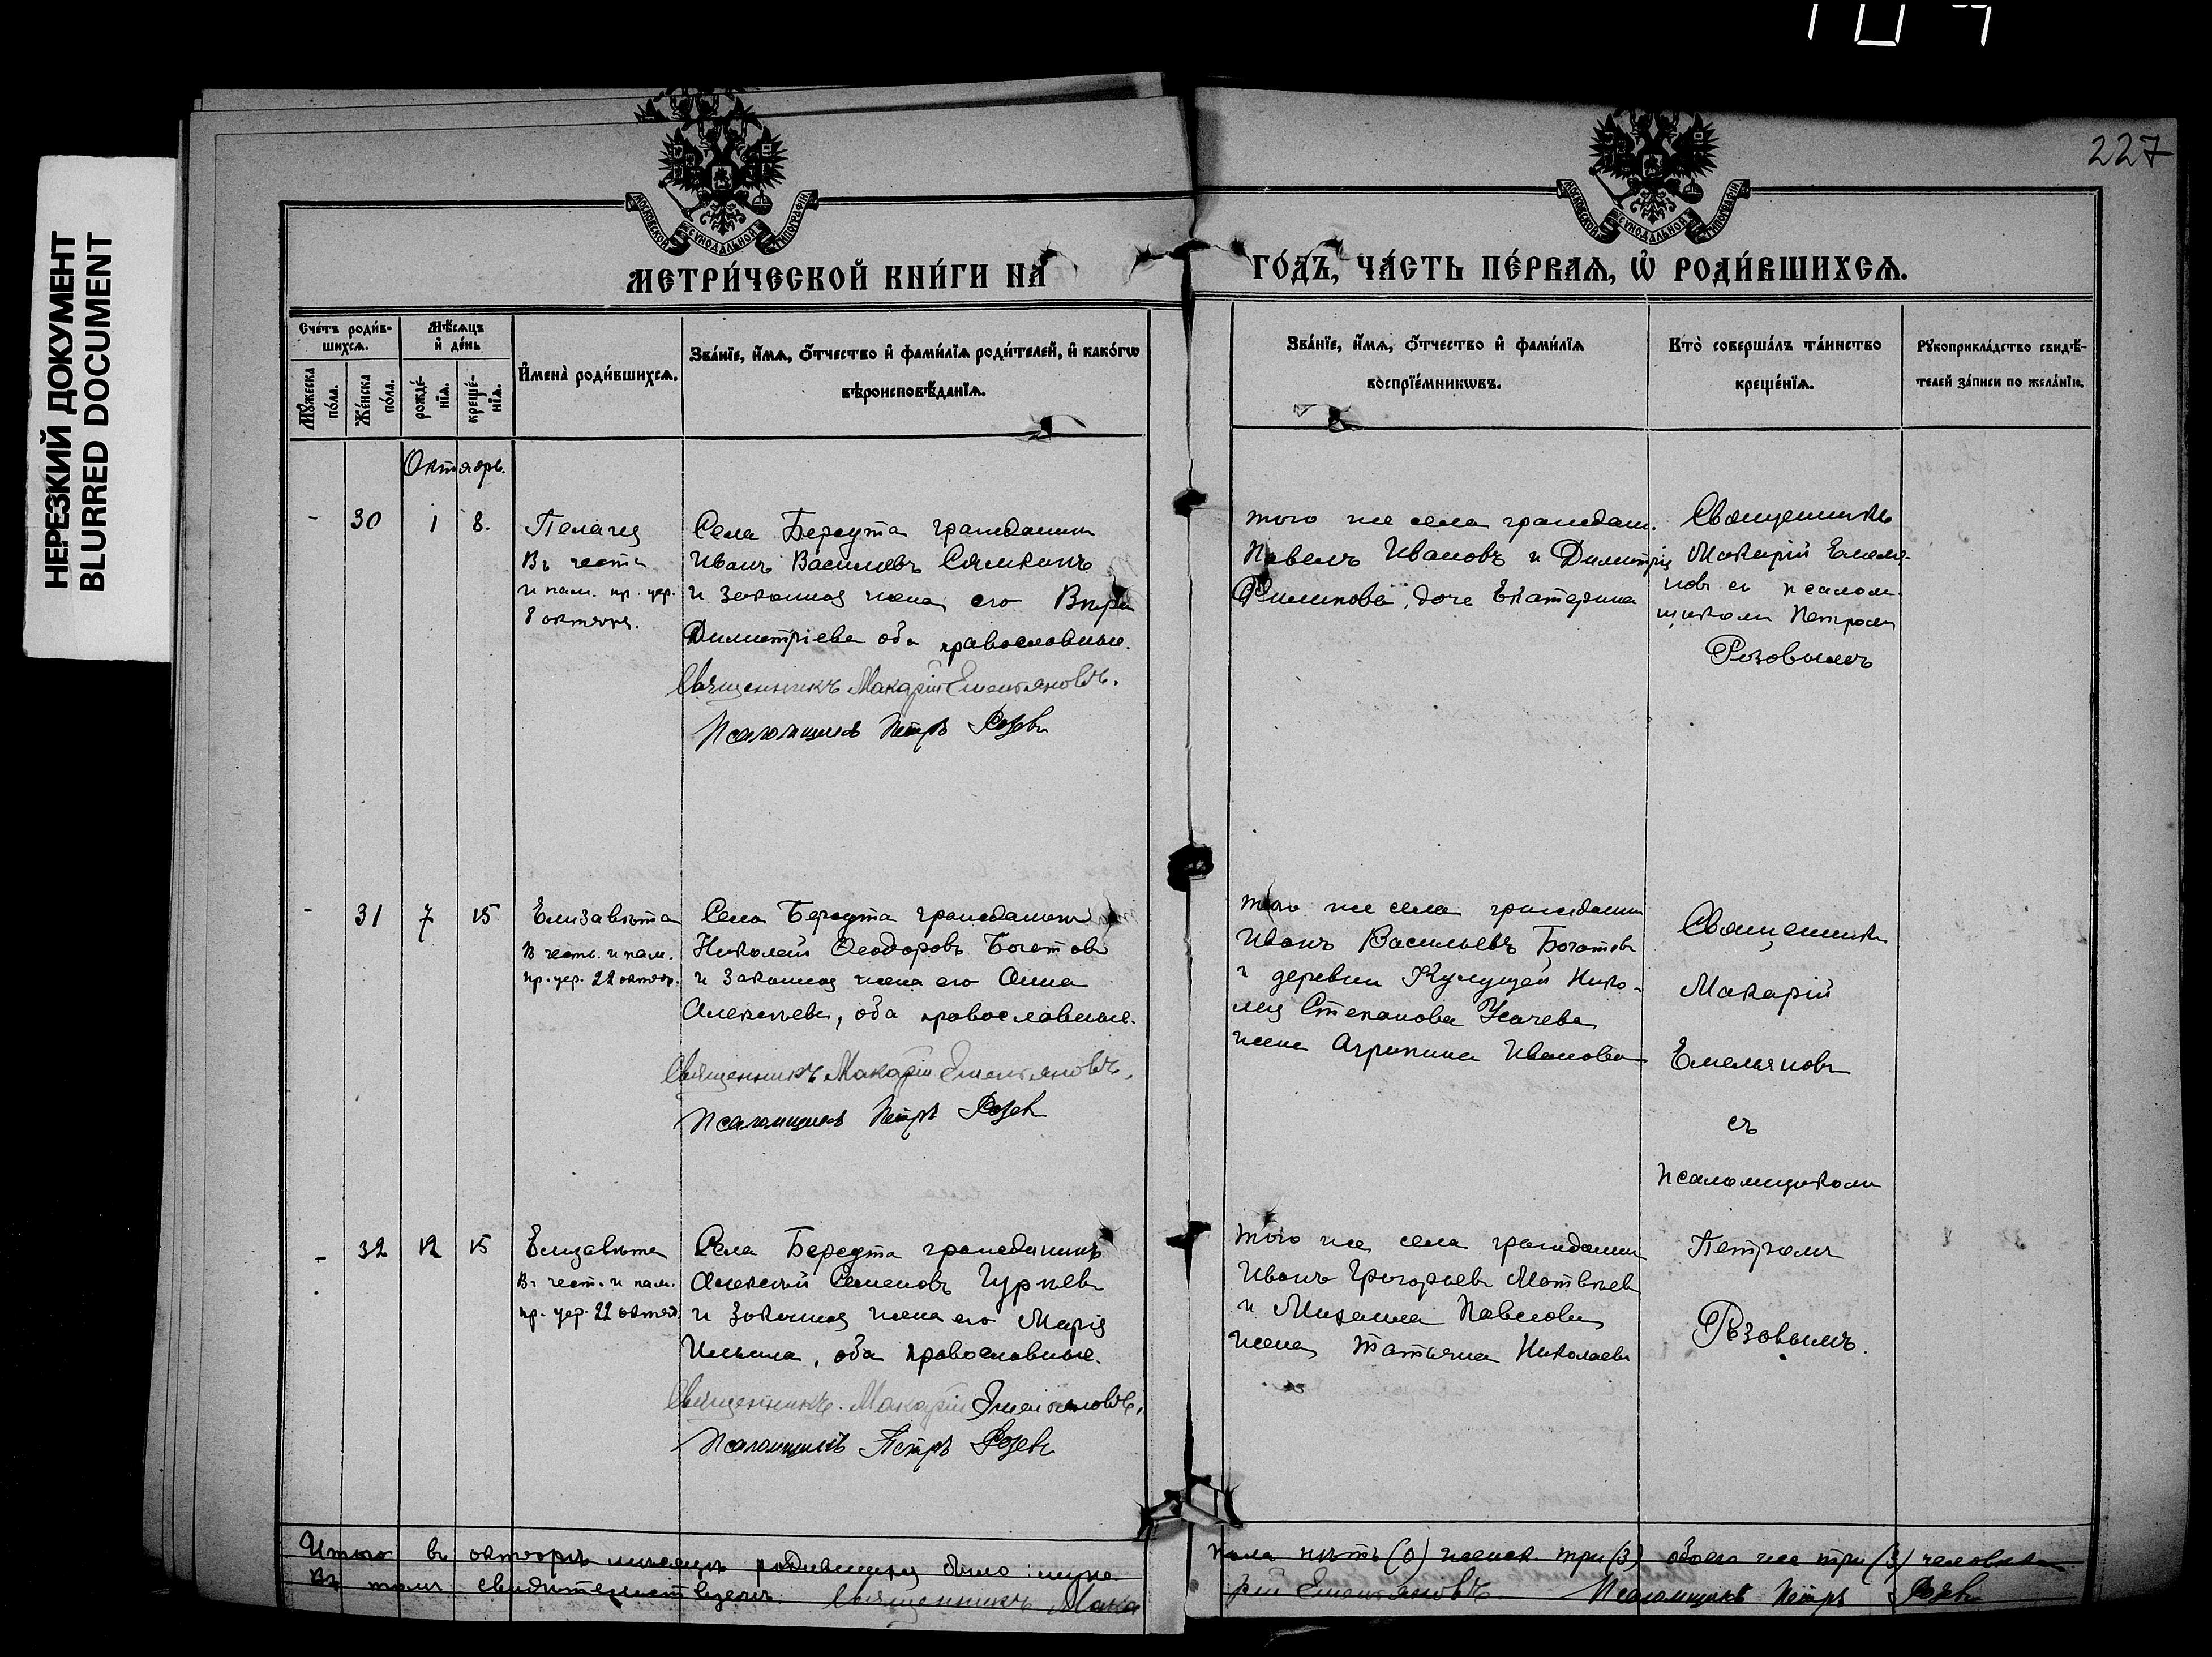 НЕРЕЗКИЙ ДОКУМЕНТ
BLURRED DOCUMENT
227
МОСКОВСКОЙ СѴНОДАЛЬНОЙ ТИПОГРАФІИ
МОСКОВСКОЙ СѴНОДАЛЬНОЙ ТИПОГРАФІИ
МЕТРИ́ЧЕСКОЙ КНИ́ГИ НА
ГО́ДЪ, ЧА́СТЬ ПЕ́РВАѦ, Ѡ҆ РОДИ́ВШИХСѦ.
Сче́тъ роди́в-
шихсѧ.
Мѣ́сѧцъ
и҆ де́нь
Мꙋ́жеска по́ла.
Же́нска по́ла.
рожде́-
нїѧ.
креще́-
нїѧ.
И҆мена̀ роди́вшихсѧ.
Зва́нїе, и҆́мѧ, ѻ҆́тчество и҆ фами́лїѧ роди́телей, и҆ како́гѡ
вѣроисповѣ́данїѧ.
Зва́нїе, и҆́мѧ, ѻ҆́тчество и҆ фами́лїѧ
воспрїе́мникѡвъ.
Кто̀ соверша́лъ та́инство
креще́нїѧ.
Рꙋкоприкла́дство свидѣ́-
телей за́писи по жела́нїю.
Октябрь.
- 30 1 8.
Пелагія
Въ честь
и пам. пр. цер.
8 октября.
Села Берсута гражданинъ
Иванъ Васильевъ
и законная жена его
Димитріева оба православные.
Священникъ Макарій Емельяновъ.
Псаломщикъ Петръ Розовъ
того же села граждан.
Павелъ Ивановъ и Димитрія
Филипова, дочь Екатерина
Священникъ
Макарій Емелья-
новъ съ псалом-
щикомъ Петромъ
Розовымъ
- 31 7 15
Елизавета
В честь и пам.
пр. цер. 22 октябр.
Села Берсута гражданинъ
Николай Ѳеодоровъ Богатовъ
и законная жена его Анна
Алексѣева, оба православные.
Священникъ Макарій Емельяновъ.
Псаломщикъ Петръ Розовъ
того же села гражданин
Иванъ Васильевъ Богатовъ
и деревни Нико-
лая Степанова Усачева
жена Агрипина Иванова
Священникъ
Макарій
Емельяновъ
съ
псаломщикомъ
- 32 12 15
Елизавета
Въ чест. и пам.
пр. цер. 22 октяб.
Села Берсута гражданинъ
Алексѣй Семеновъ Гурьевъ
и законная жена его Марія
Ильина, оба православные.
Священникъ Макарій Емельяновъ.
Псаломщикъ Петръ Розовъ
того же села гражданин
Иванъ Григорьевъ Матвѣевъ
и Михаила Павлова
жена Татьяна Николаева
Петромъ
Розовымъ.
Итого въ октябрѣ мѣсяцѣ родившихся было муже.
пола нѣтъ (0) женск. три (3) обоего же три (3) человѣка
Въ томъ свидѣтельствуемъ: Священникъ Мака
рій Емельяновъ. Псаломщикъ Петръ Розовъ